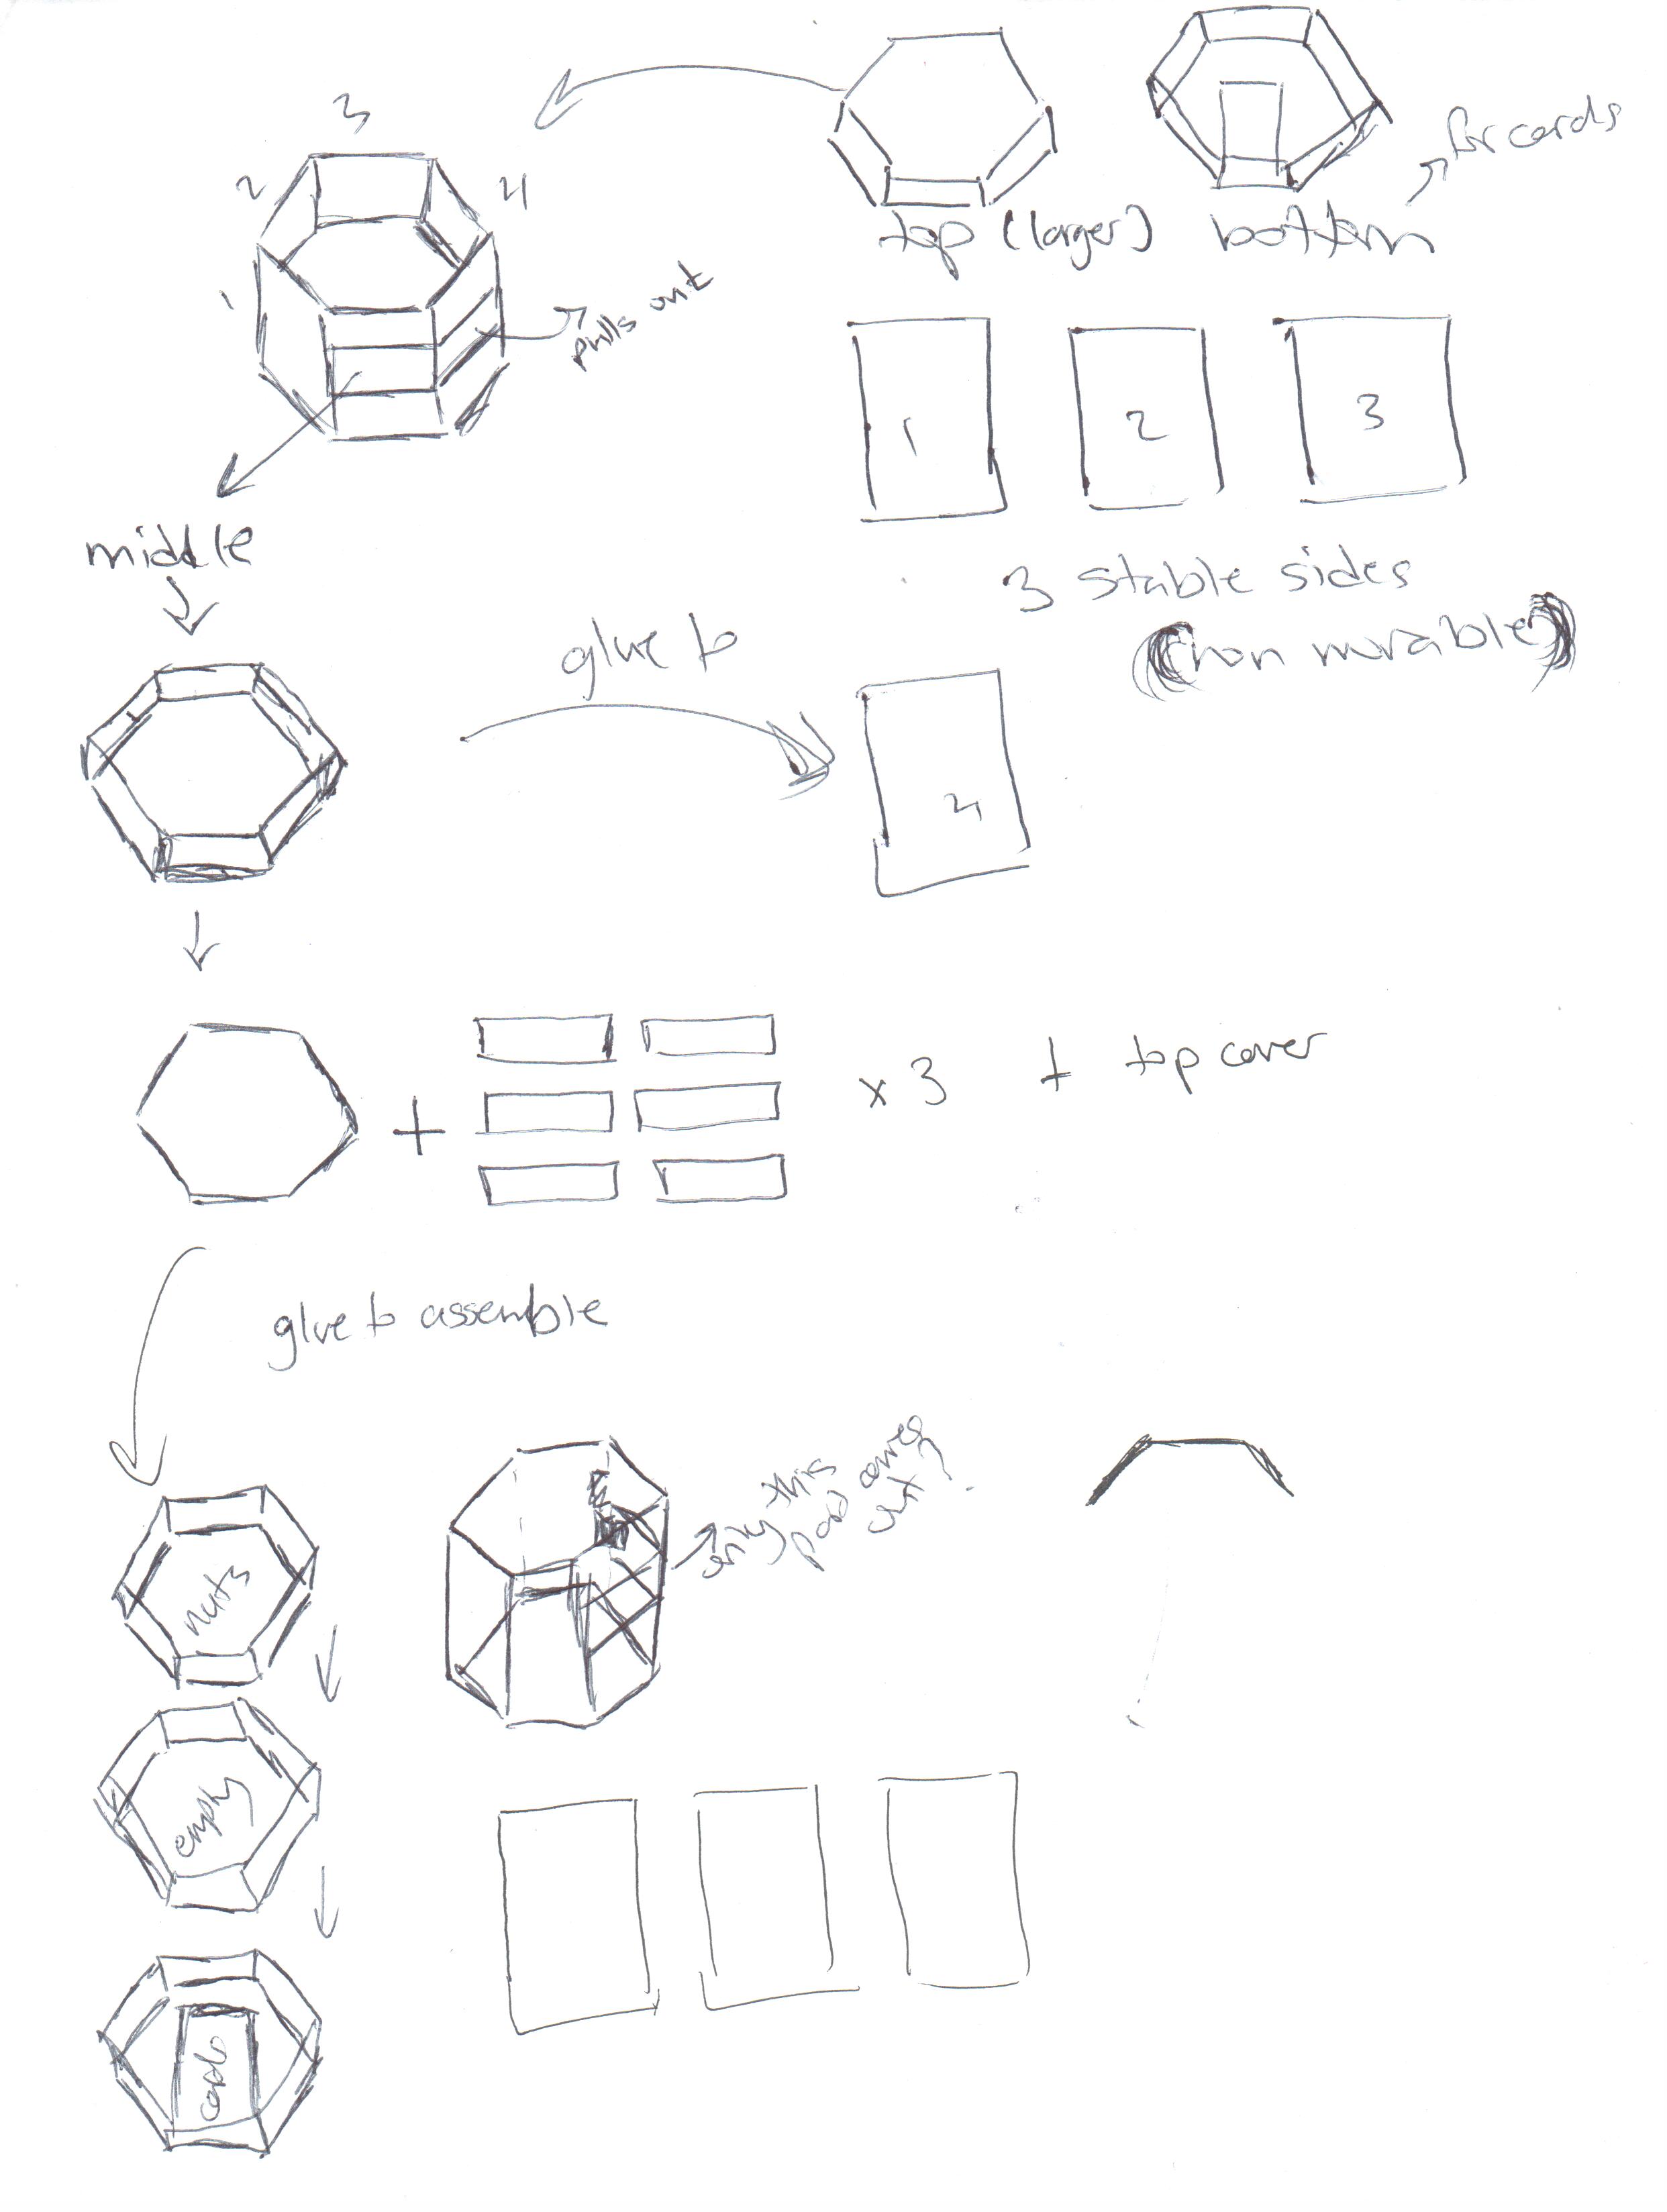 3
2
4
1
for cards
top (larger)
bottom
pulls out
1
2
3
middle
3 stable sides
(non movable)
glue to
4
x 3 + top cover
+
glue to assemble
only this
part comes
out?
nuts
empty
cards